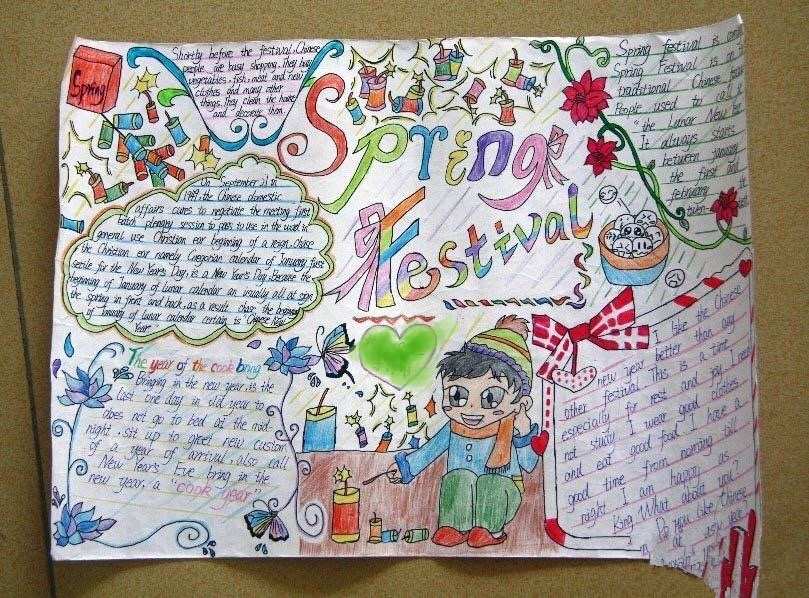 Spring
Shortly before the festival, Chinese
people are busy shopping. They buy
vegetables, fish, meat and new
clothes and many other
things. They clean the house
and decorate them.
Spring
Festival
Spring festival is
Spring Festival is
traditional Chinese
People used to call
"the Lunar New
It always starts
between January
the first and
february the
On September 21 st
1949, the Chinese domestic
affairs comes to negotiate the meeting first
session to pass in use in the word in
general use Christian ear beginning of a reign. Chinese
the Christian ear namely Gregorian calendar of January first
for the New Year's Day, is a New Year's Day, Because the
beginning of January of lunar calendar an usually all at
the spring in front and back, as a result
of January of lunar calendar certain is "Chinese New
Year
The year of the cook bring
bringing in the new year is the
last one day in old year to
does not go to bed at the mid-
night, sit up to greet new
of a year of arrival, also call
New Years' Eve bring in the
new year, a "cook year."
I like the Chinese
new year better than any
other festival This is a time
especially for rest and joy I need
not study I wear good clothes
and eat good food I have a
good time from morning till
night I am happy as
King What about you?
Do you like Chinese